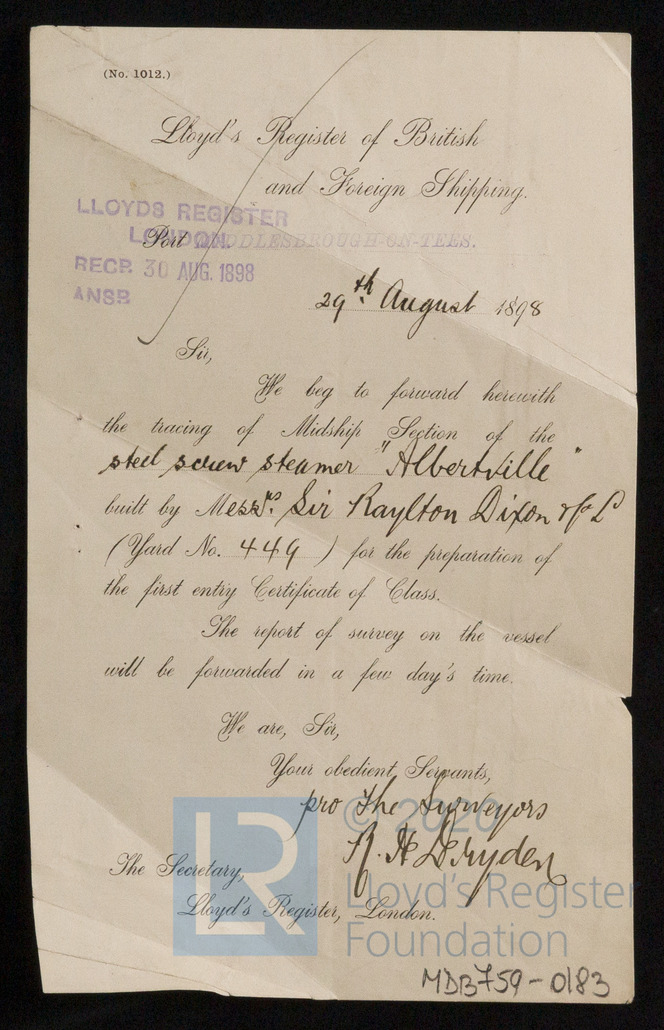 (No. 1012.)
Lloyd's Register of British
and Foreign Shipping.
LLOYDS REGISTER
LONDON.
Port MIDDLESBROUGH-ON-TEES.
RECD. 30 AUG. 1898
ANSD
29th August 1898
Sir,
We beg to forward herewith
the tracing of Midship Section of the
steel screw steamer "Albertville"
built by Messrs. Sir Raylton Dixon & Co L
(Yard No. 449) for the preparation of
the first entry Certificate of Class.
The report of survey on the vessel
will be forwarded in a few day's time.
We are, Sir,
Your obedient Servants,
pro The Surveyors
R. H. Dryden
The Secretary,
Lloyd's Register, London.
LR
© 2020
Lloyd's Register
Foundation
MDB759-0183